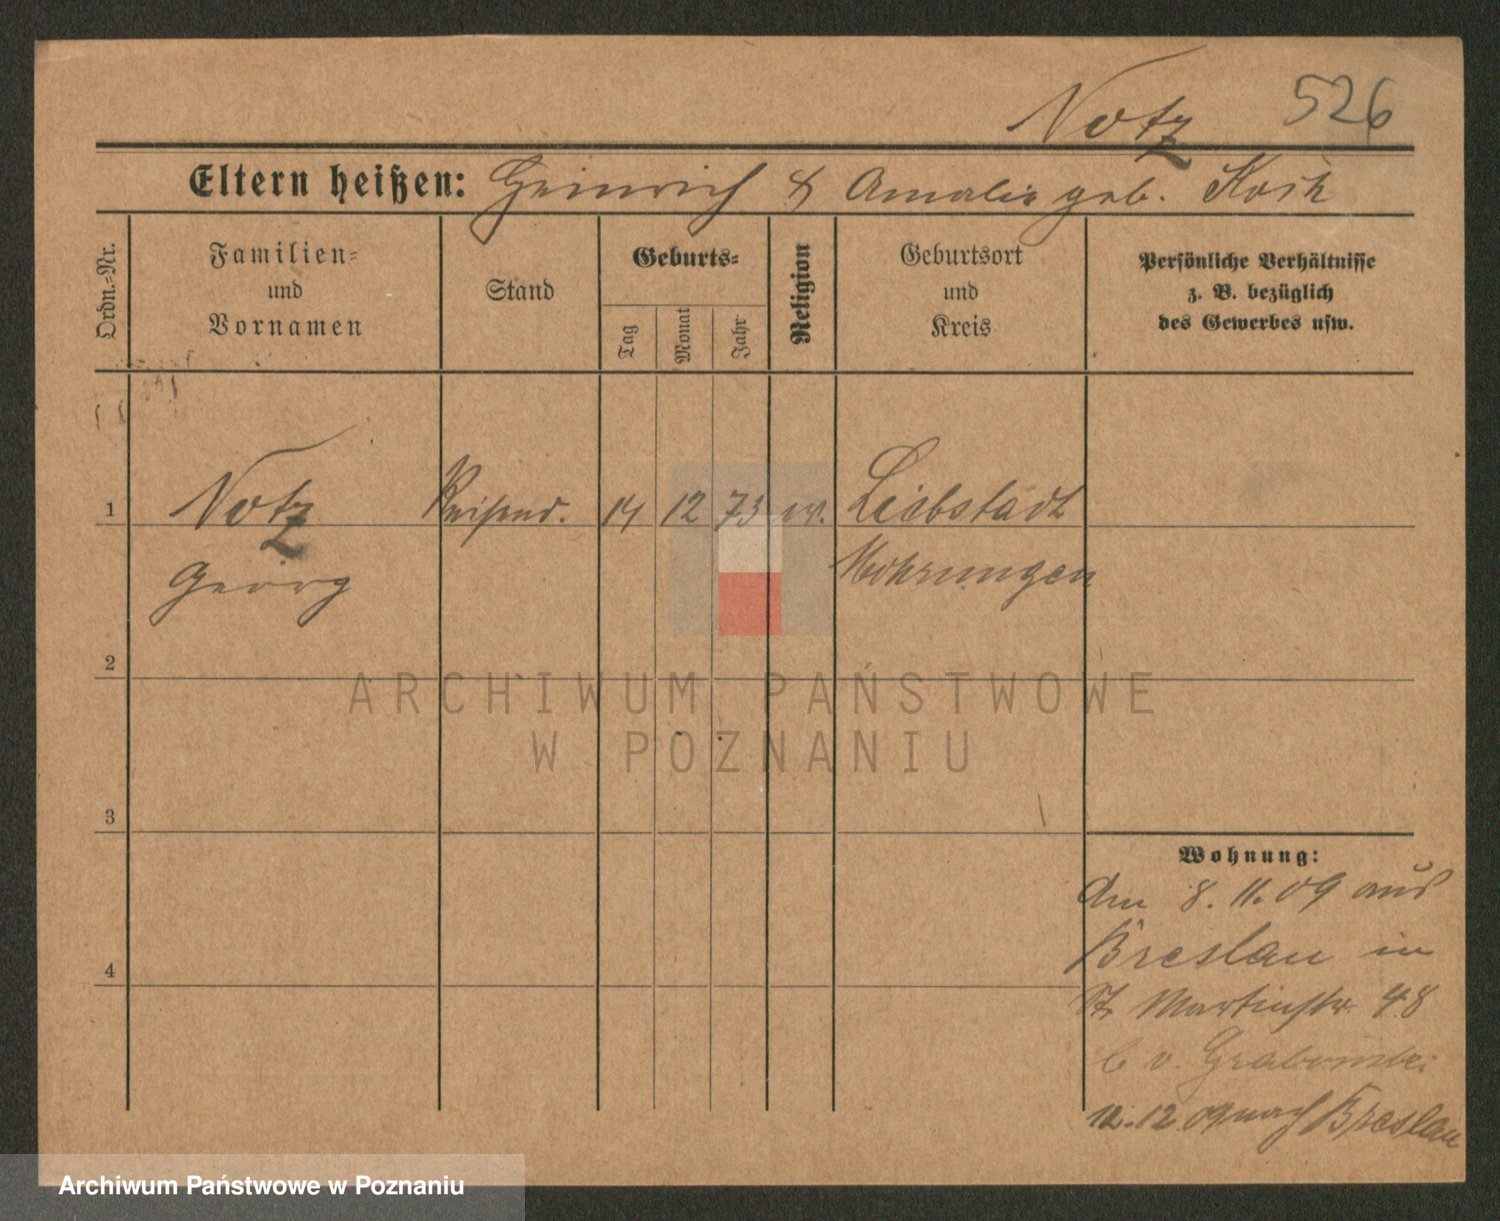 Notz 526
Eltern heißen: Heinrich & Amalie geb. Koch
Ordn.-Nr.
Familien-
und
Vornamen
Stand
Geburts-
Tag
Monat
Jahr
Religion
Geburtsort
und
Kreis
Persönliche Verhältnisse
z. B. bezüglich
des Gewerbes usw.
1 Notz Reisend. 14 12 73 ev. Liebstadt
Georg Mohrungen
2
ARCHIWUM PAŃSTWOWE
W POZNANIU
3
Wohnung:
Am 8. 11. 09 aus
Breslau in
St Martinstr. 48
b v. Grabowski
4
12. 12. 09 nach Breslau
Archiwum Państwowe w Poznaniu